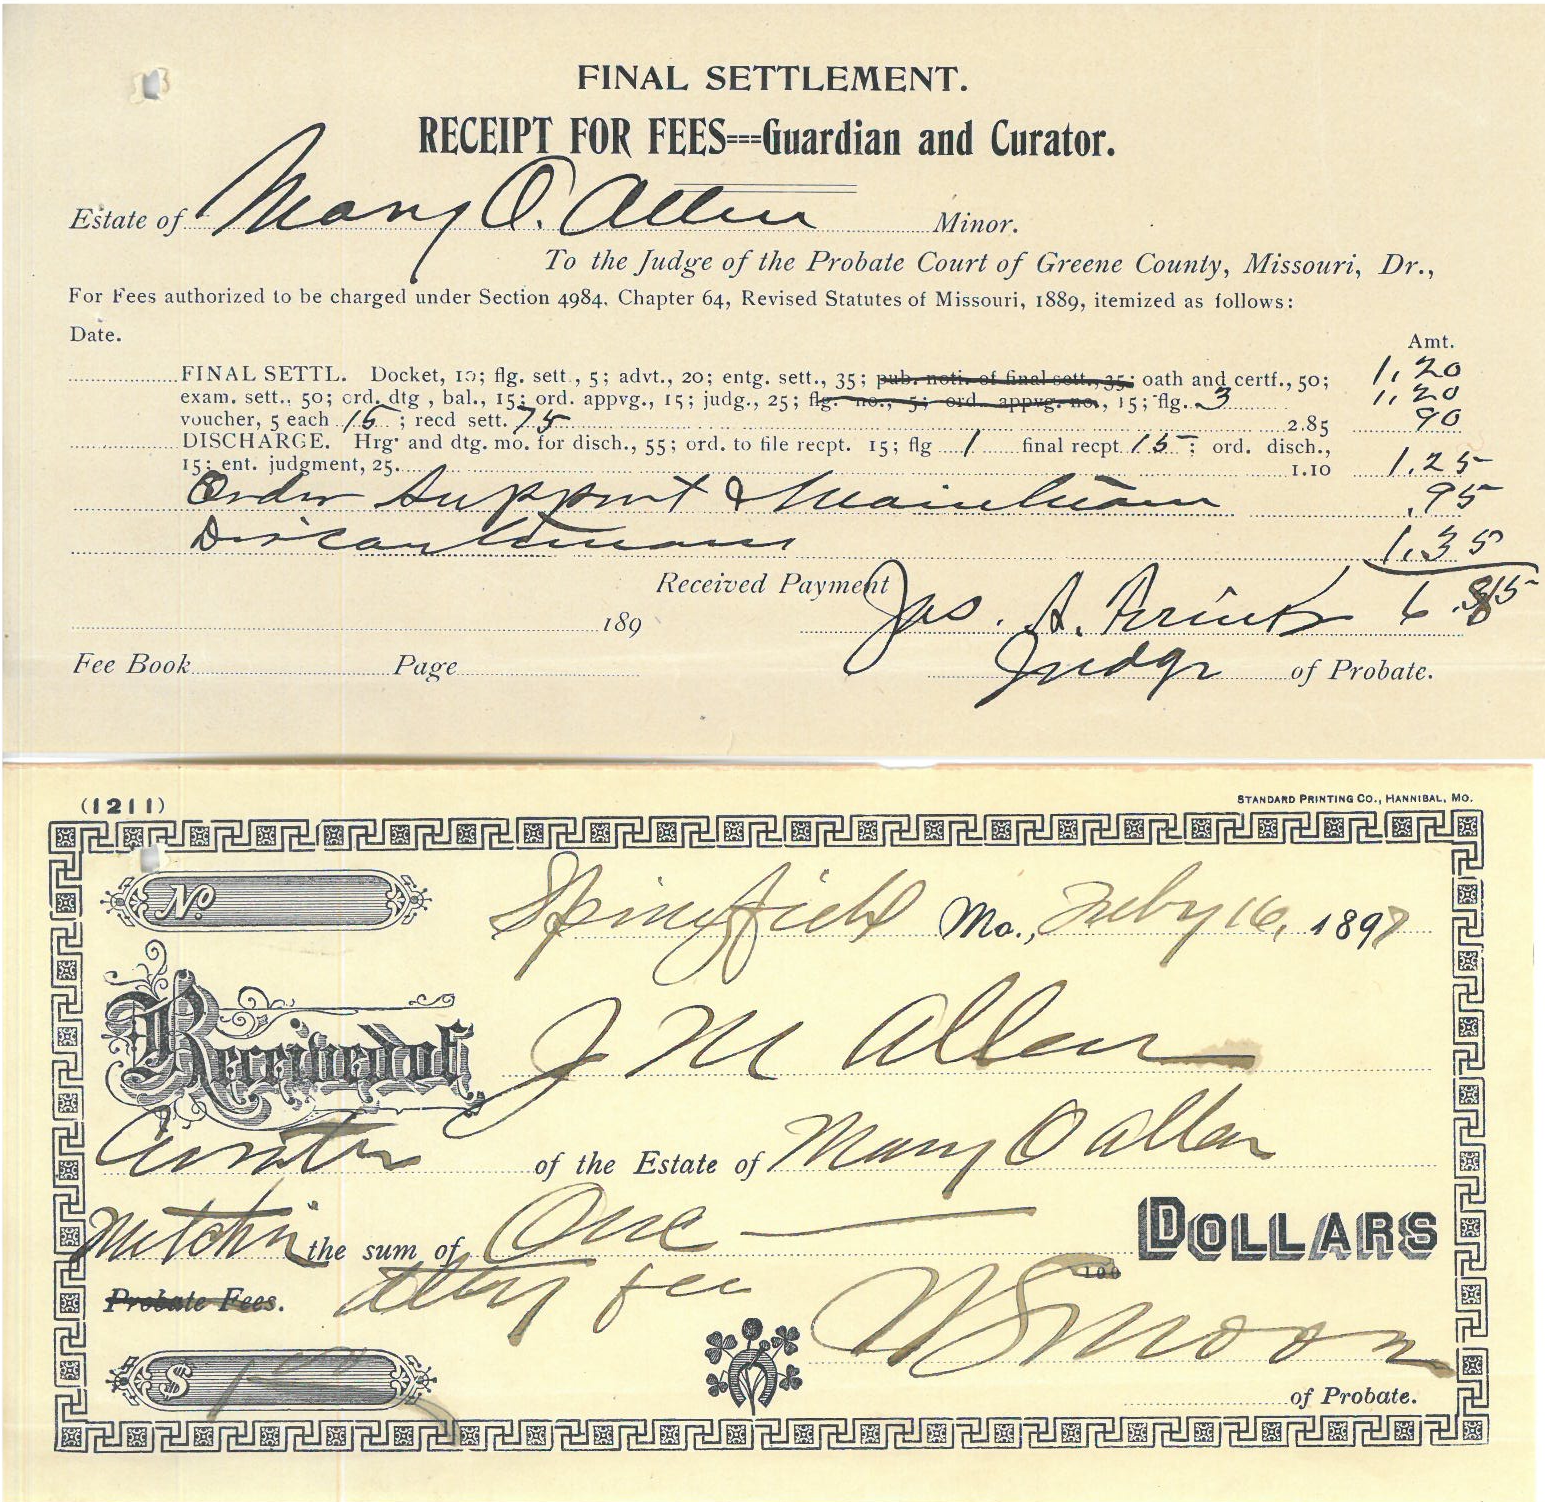 FINAL SETTLEMENT.
RECEIPT FOR FEES===Guardian and Curator.
Estate of Mary O. Allen Minor.
To the Judge of the Probate Court of Greene County, Missouri, Dr.,
For Fees authorized to be charged under Section 4984, Chapter 64, Revised Statutes of Missouri, 1889, itemized as follows:
Date. Amt.
FINAL SETTL. Docket, 10; flg. sett., 5; advt., 20; entg. sett., 35; pub. noti. of final sett., 35; oath and certf., 50; 1.20
exam. sett., 50; ord. dtg, bal., 15; ord. appvg., 15; judg., 25; flg. no., 5; ord. appvg. no., 15; flg. 3 1.20
voucher, 5 each 15; recd sett. 75 2.85 90
DISCHARGE. Hrg and dtg. mo. for disch., 55; ord. to file recpt. 15; flg 1 final recpt 15; ord. disch.,
15; ent. judgment, 25. 1.10 1.25
Order Support & Maintenance .95
1.35
Received Payment Jas. 6.85
189
Fee Book Page Judge of Probate.
(1211) STANDARD PRINTING CO., HANNIBAL, MO.
No. Springfield Mo., Feby 16, 1897
Received of J M Allen
Curator of the Estate of Mary O Allen
the sum of One DOLLARS
100
Probate Fees. Atty fee
$ 1 00
of Probate.